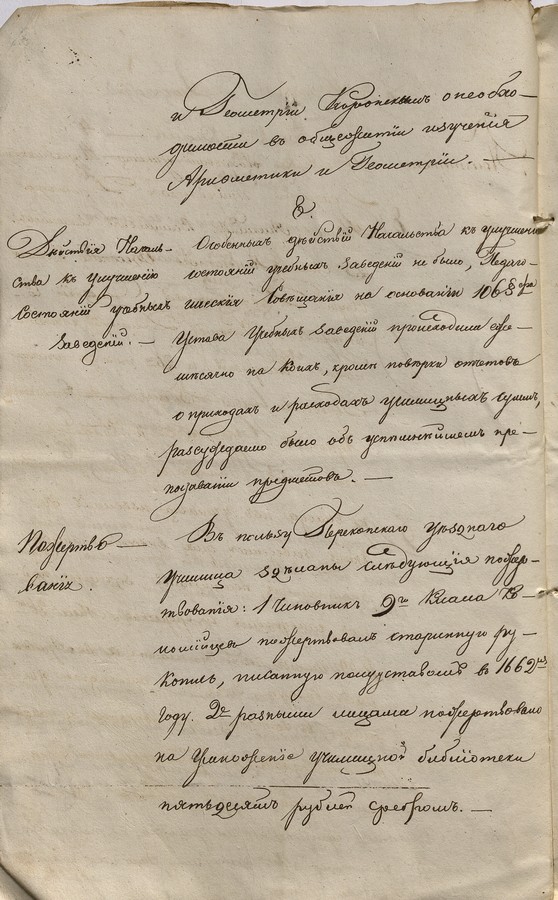 и Геометріи Короонскимъ о необхо-
димости въ общежитіи изученія
Ариѳметики и Геометріи. —
Е.
Дѣйствія Началь-
ства къ улучшенію
состояній учебныхъ
заведеній. —
Особенныхъ дѣйствій Начальства къ улучшенію
состояній учебныхъ заведеній не было, Педаго-
гическія Совѣщанія на основаніи 106 §фа
Устава Учебныхъ заведеній происходили еже-
мѣсячно на коихъ, кромѣ повѣрки отчетовъ
о приходахъ и расходахъ училищныхъ суммъ,
разсуждаемо было объ успѣшнѣйшемъ пре-
подаваніи предметовъ. —
Пожертво —
ваніи.
Въ пользу Перекопскаго уѣзднаго
училища здѣланы слѣдующія пожер-
твованія: 1 Чиновникъ 9го Класса
пожертвовалъ старинную ру-
копись, писанную полууставомъ въ 1662мъ
году. 2е разными лицами пожертвовано
на умноженіе училищной библіотеки
пятьдесятъ рублей серебромъ. —